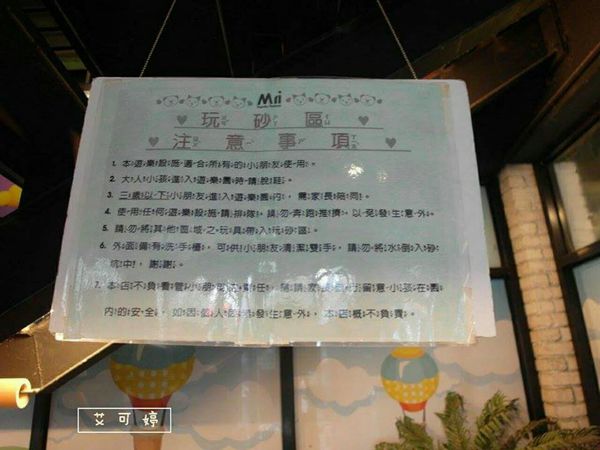 Mii
玩砂區
注意事項
1. 本遊樂設施適合所有的小朋友使用。
2. 大人小孩進入遊樂園時請脫鞋。
3. 三歲以下小朋友進入遊樂園內，需家長陪同。
4. 使用任何遊樂設施請排隊，請勿奔跑推擠，以免發生意外。
5. 請勿將其他區域之玩具帶入玩砂區。
6. 外面備有洗手檯，可供小朋友清潔雙手，請勿將水倒入砂
坑中，謝謝。
7. 本店不負看管小朋友之責任，請家長留意小孩在園
內的安全，如因個人發生意外，本店概不負責。
艾可婷